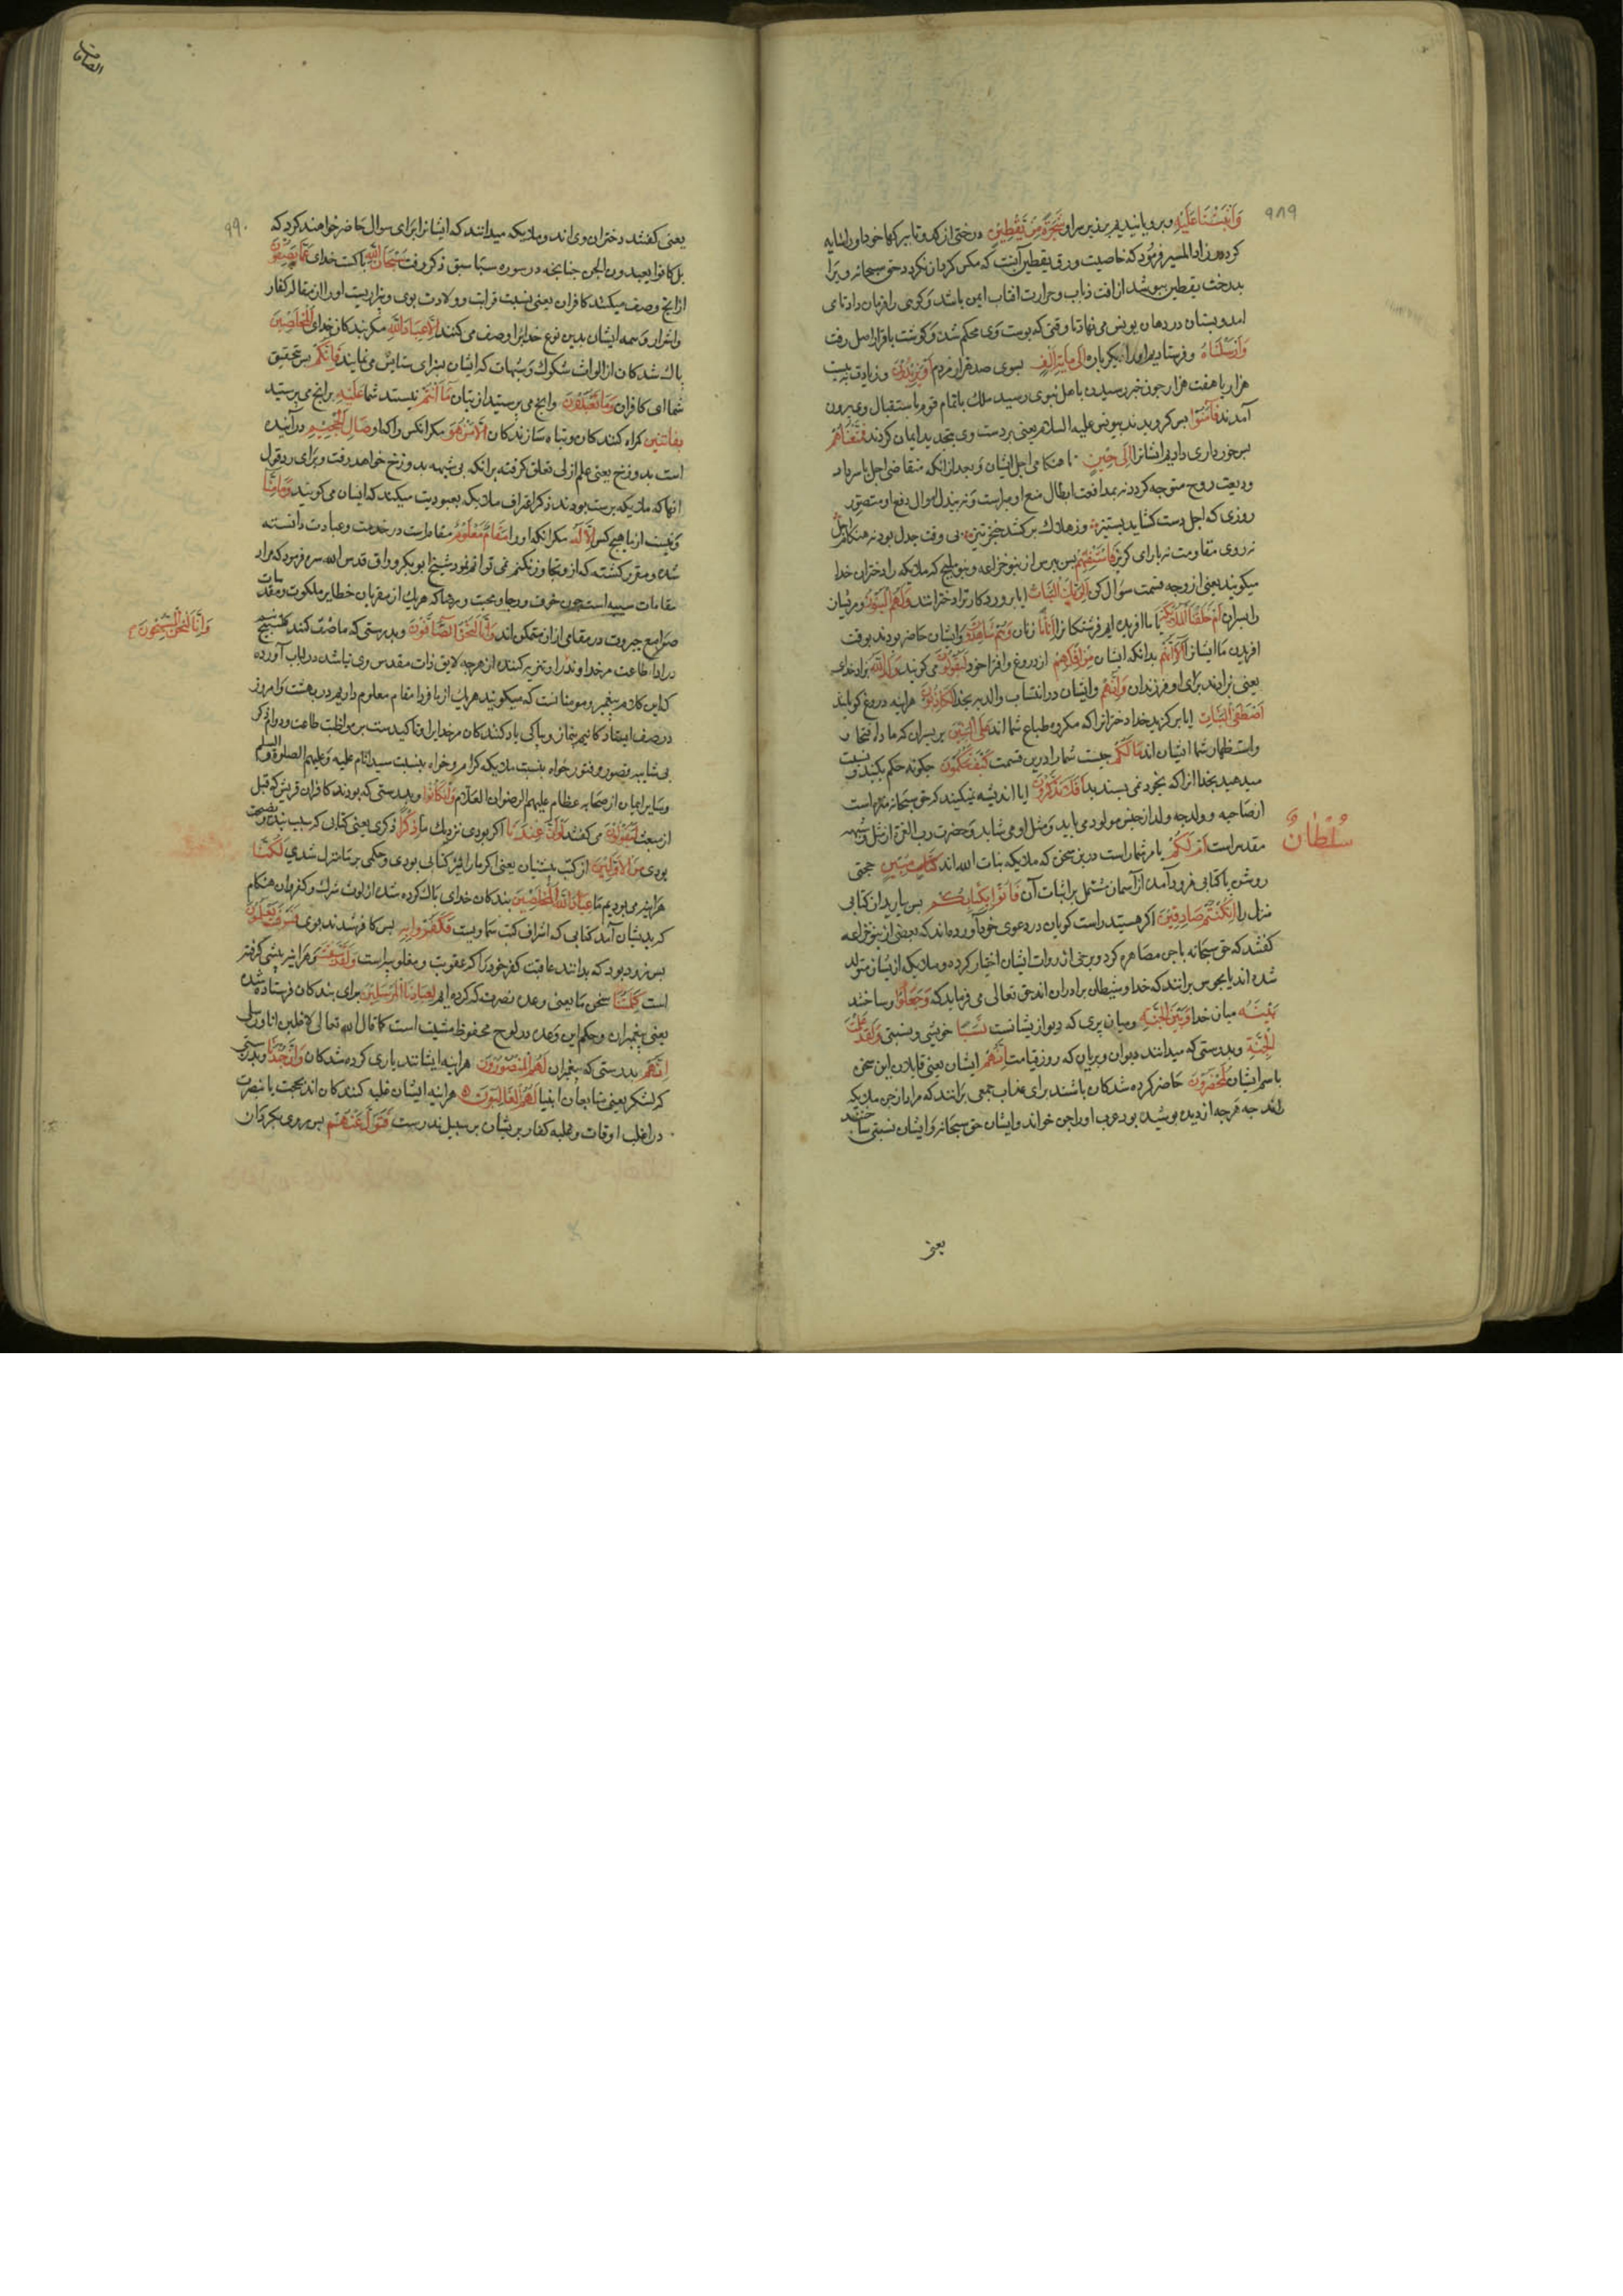 ۹۸۹
وَاَنْبَتْنَا عَلَيْهِ و برویانیدیم بر زبر سر او شَجَرَةً مِنْ يَقْطِينٍ درختی از کدو تا ببرکها خود او را سایه
کرد در زاد المسیر فرمود که خاصیت ورق یقطین آنست که مکس کرد آن نکردد حق سبحانه ویرا
بدرخت یقطین بپوشید از افت ذباب و حرارت افتاب ایمن باشد و کوهی را فرمان داد تا می
امد و پستان در دهان یونس می نهاد تا وقتی که پوست وی محکم شد و کوشت باقرار اصل رفت
وَاَرْسَلْنَاهُ و فرستادیم او را دیکر باره اِلَى مِايَةِ اَلْفٍ بسوی صد هزار مردم اَوْ يَزِيدُونَ و زیادت به بیست
هزار یا هفت هزار چون خبر رسیدن باهل نینوی رسید ملک با تمام قوم باستقبال وی بیرون
آمدند فَآمَنُوا پس کرویدند بیونس علیه السلام یعنی بر دست وی تجدید ایمان کردند فَمَتَّعْنَاهُمْ
برخورداری دادیم ایشانرا اِلَى حِينٍ تا هنکامی اجل ایشان و بعد از انکه متقاضی اجل باسترداد
ودیعت روح متوجه کردد نه بمدافعت ابطال منع او میسر است و نه ببذل اموال دفع او متصور
روزی که اجل دست کشاید بستیز وز هلاک برکشد خنجر تیز نی وقت جدل بود نه هنکام دخل
نه روی مقاومت نه یارای کریز فَاسْتَفْتِهِمْ پس بپرس از بنو خزاعه و بنو ملیح که ملایکه را دختران خدا
میکویند یعنی از وجه قسمت سؤال کن اَلِرَبِّكَ الْبَنَاتُ ایا پروردکار ترا دخترانند وَلَهُمُ الْبَنُونَ و مر ایشان
را پسران اَمْ خَلَقْنَا الْمَلَائِكَةَ یا ما افریده ایم فرشتکانرا اِنَاثًا زنان وَهُمْ شَاهِدُونَ و ایشان حاضر بودند بوقت
افریدن ما ایشانرا اَلَا اِنَّهُمْ بدانکه ایشان مِنْ اِفْكِهِمْ از دروغ و افترا خود لَيَقُولُونَ می کویند وَلَدَ اللّٰهُ بزاد خدای
یعنی بزادند برای او فرزندان وَاِنَّهُمْ و ایشان در انتساب والدیه بخدا لَكَاذِبُونَ هراینه دروغ کویانند
اَصْطَفَى الْبَنَاتِ ایا برکزید خدا دخترانرا که مکروه طباع شما اند عَلَى الْبَنِينَ بر پسران که ماده افتخار
و استظهار شما ایشان اند مَا لَكُمْ چیست شما را درین قسمت كَيْفَ تَحْكُمُونَ چکونه حکم بکنید و نسبت
میدهید بخدا انرا که بخود نمی پسندید اَفَلَا تَذَكَّرُونَ ایا اندیشه نمیکنید که حق سبحانه منزه است
از صاحبه و ولد چه ولد از جنس مولود می باید و مثل او می شاید و حضرت رب العزة از مثل و شبهه
مقدس است اَمْ لَكُمْ یا مر شما راست درین سخن که ملایکه بنات الله اند سُلْطَانٌ مُبِينٌ حجتی
سُلْطَانٌ
روشن یا کتابی فرود آمده از آسمان مشتمل بر اثبات آن فَأْتُوا بِكِتَابِكُمْ پس بیارید ان کتابی
منزل را اِنْ كُنْتُمْ صَادِقِينَ اکر هستید راست کویان در دعوی خود آورده اند که بعضی از بنو خزاعه
کفتند که حق سبحانه با جن مصاهره کرد و برخی از سروات ایشان اختیار کرده و ملایکه از یشان متولد
شده اند یا مجوس برانند که خدا و شیطان برادران اند حق تعالی می فرماید که وَجَعَلُوا و ساختند
بَيْنَهُ میان خدا وَبَيْنَ الْجِنَّةِ و میان پری که دیو از یشانست نَسَبًا خویشی و نسبتی وَلَقَدْ عَلِمَتِ
الْجِنَّةُ و بدرستی که میدانند دیوان و پریان که روز قیامت اِنَّهُمْ ایشان یعنی قایلان این سخن
باسم ایشان لَمُحْضَرُونَ حاضر کرده شدکان باشند برای عذاب جمعی برانند که مراد از جن ملایکه
اند چه هرچه از دیدن پوشیده بود عرب او را جن خواند و ایشان حق سبحانه و ایشان نسبتی ساختند
یعنی
الصافات
۹۹۰
یعنی کفتند دختران وی اند و ملایکه میدانند که ایشانرا برای سوال حاضر خواهند کرد که
بل کانوا یعبدون الجن چنانچه در سوره سبا سبق ذکر رفت سُبْحَانَ اللّٰهِ پاکست خدای عَمَّا يَصِفُونَ
از انچ وصف میکنند کافران یعنی نسبت قرابت و ولادت بوی و بیزاریست او را از مقاله کفار
و اشرار و همه ایشان بدین نوع خدایرا وصف می کنند اِلَّا عِبَادَ اللّٰهِ مکر بندکان خدای الْمُخْلَصِينَ
پاک شدکان از الواث شکوک و شبهات که ایشان بسزای ستایش می نمایند فَاِنَّكُمْ پس بتحقیق
شما ای کافران وَمَا تَعْبُدُونَ و انچ می پرستید از بتان مَا اَنْتُمْ نیستند شما عَلَيْهِ بر انچ می پرستید
بِفَاتِنِينَ کمراه کنندکان و تباه سازندکان اِلَّا مَنْ هُوَ مکر انکس را که او صَالِ الْجَحِيمِ درآینده
است بدوزخ یعنی علم ازلی تعلق کرفته بر انکه بی شبهه بدوزخ خواهد رفت و برای رد قول
انها که ملایکه پرست بودند ذکر اعتراف ملایکه بعبودیت میکند که ایشان می کویند وَمَا مِنَّا
و نیست از ما هیچ کس اِلَّا لَهُ مکر انکه او را مَقَامٌ مَعْلُومٌ مقامی است در خدمت و عبادت دانسته
شده و مقرر کشته که از و تجاوز نکنیم نمی توانیم نمود شیخ ابو بکر وراق قدس الله سره فرمود که مراد
مقامات سنیه است چون خوف و رجا و محبت و رضا که هریک از مقربان حظایر ملکوت و مقدسات
صوامع جبروت در مقامی از ان متمکن اند وَاِنَّا لَنَحْنُ الصَّافُّونَ و بدرستی که ما صف کنندکانیم
وَاِنَّا لَنَحْنُ الْمُسَبِّحُونَ
در ادا طاعت مر خداوند را و تنزیه کننده از هرچه لایق ذات مقدس وی نباشد در لباب آورده
که این کلام پیغمبر و مومنانست که میکویند هریک از ما فردا مقام معلوم داریم در بهشت و امروز
در صف ایستادکانیم بنماز و بپاکی یاد کنندکان مر خدایرا و تاکیدست بر مواظبت طاعت و دوام ذکر
بی شایبه قصور و فتور خواه بنسبت ملایکه کرام و خواه بنسبت سید انام علیه و علیهم الصلوة والسلام
و سایر اعیان از صحابه عظام علیهم الرضوان الملک العلام وَاِنْ كَانُوا و بدرستی که بودند کافران قریش که قبل
از بعثت لَيَقُولُونَ می کفتند لَوْ اَنَّ عِنْدَنَا اکر بودی نزدیک ما ذِكْرًا ذکری یعنی کتابی که سبب پند و نصیحت
بودی مِنَ الْاَوَّلِينَ از کتب پیشینیان یعنی اکر ما را نیز کتابی بودی و حکمی بر ما منزل شدی لَكُنَّا
هراینه می بودیم ما عِبَادَ اللّٰهِ الْمُخْلَصِينَ بندکان خدای پاک کرده شده از لوث شرک و کفر و ان هنکام
که بدیشان آمد کتابی که اشرف کتب سماویست فَكَفَرُوا بِهِ پس کافر شدند بوی فَسَوْفَ يَعْلَمُونَ
پس زود بود که بدانند عاقبت کفر خود را که عقوبت و مغلوبیست وَلَقَدْ سَبَقَتْ و هراینه پیشی کرفته
است كَلِمَتُنَا سخن ما یعنی وعده نصرت که کرده ایم لِعِبَادِنَا الْمُرْسَلِينَ برای بندکان فرستاده شده
یعنی پیغمبران و حکم این وعده در لوح محفوظ مثبت است کما قال الله تعالی لاغلبن انا و رسلی
اِنَّهُمْ بدرستی که پیغمبران لَهُمُ الْمَنْصُورُونَ هراینه ایشانند یاری کرده شدکان وَاِنَّ جُنْدَنَا و بدرستی
که لشکر یعنی متابعان انبیا لَهُمُ الْغَالِبُونَ هراینه ایشان غلبه کنندکان اند بحجت یا نصرت
در اغلب اوقات و غلبه کفار بریشان بر سبیل ندرست فَتَوَلَّ عَنْهُمْ پس روی بکردان